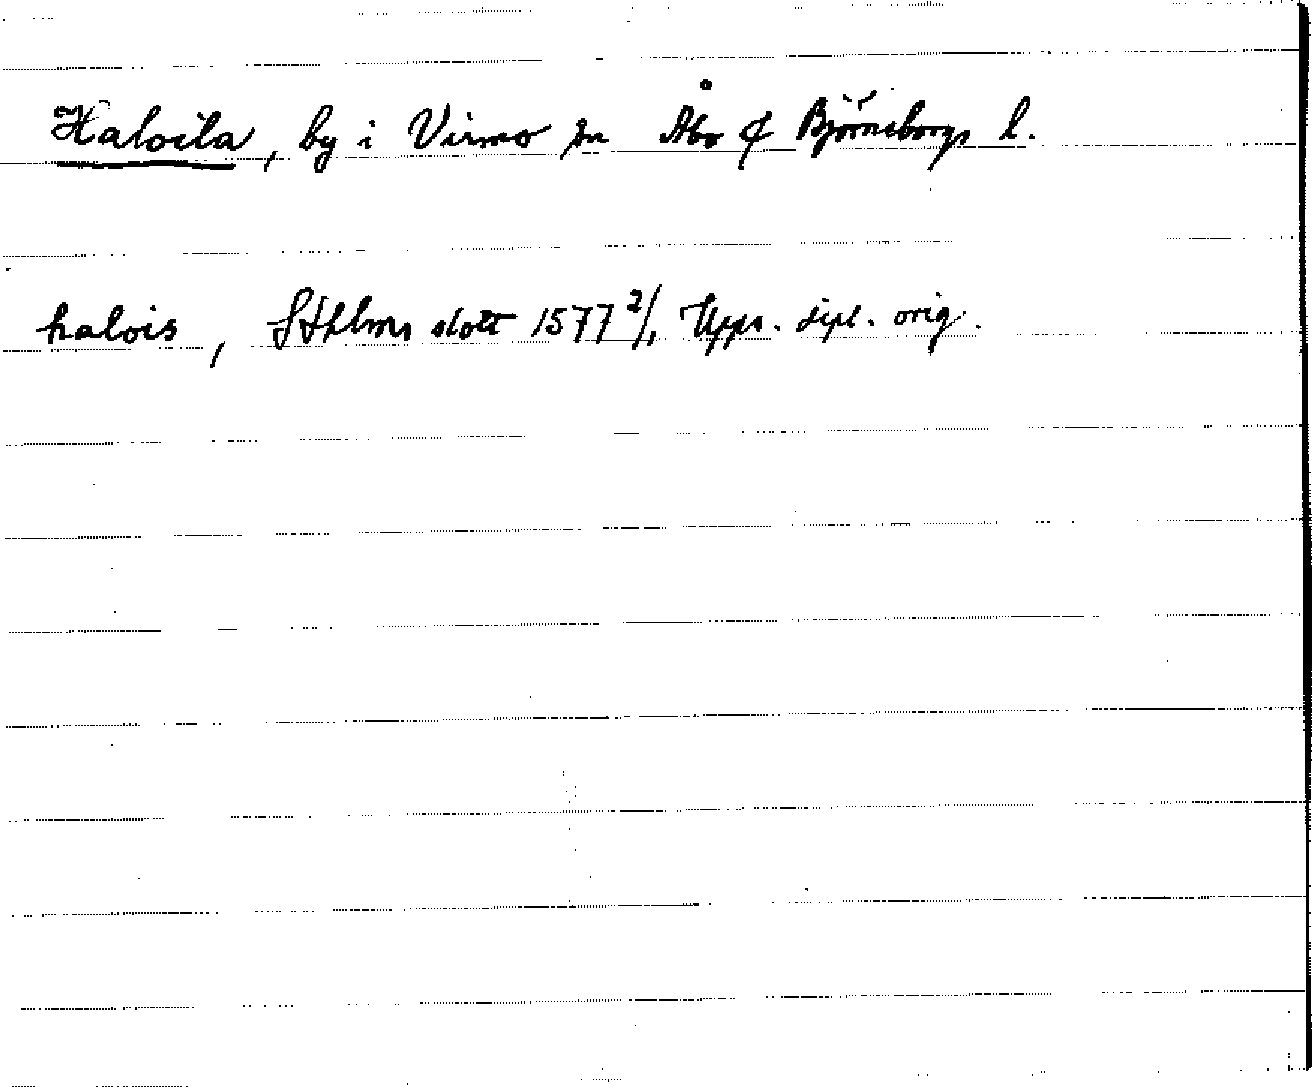 Haloila, by i Virmo sn Åbo & Björneborgs l.
halois, Sthlms slott 1577 2/1 Upps. dipl. orig.